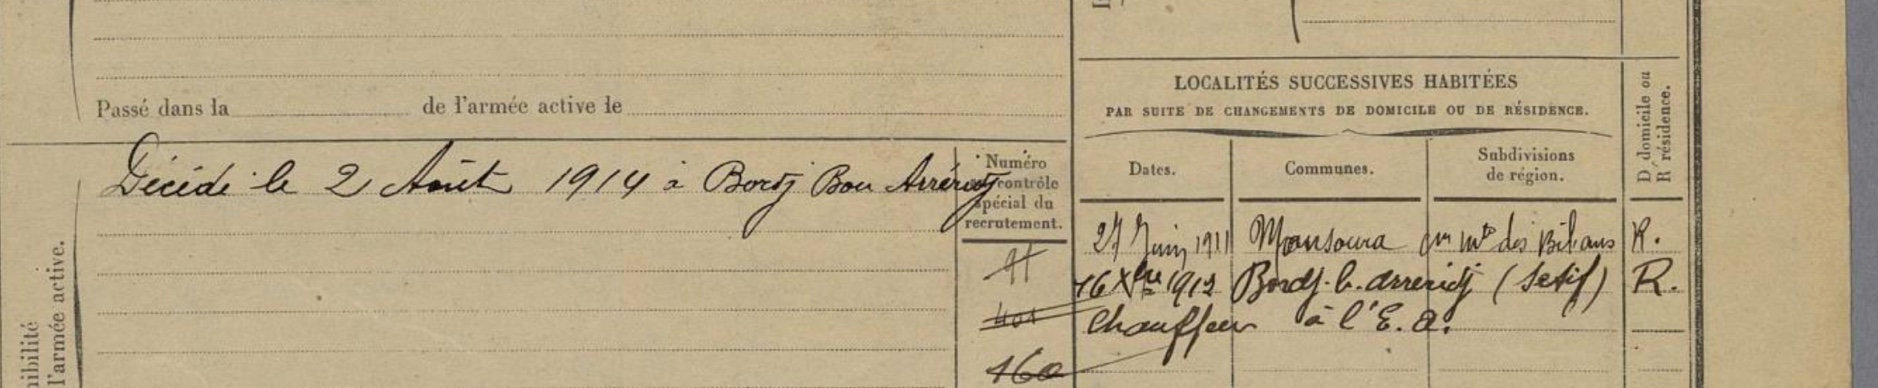 Passé dans la de l'armée active le
Décédé le 2 Août 1914 à Bordj Bou Arréridj
Numéro
contrôle
spécial du
recrutement.
401
160
hibilité
l'armée active.
LOCALITÉS SUCCESSIVES HABITÉES
PAR SUITE DE CHANGEMENTS DE DOMICILE OU DE RÉSIDENCE.
D domicile ou
R résidence.
Dates. Communes. Subdivisions
de région.
27 Juin 1911 Mansoura des Bibans R.
16 Xbre 1912 Bordj. b. arreridj (Setif) R.
Chauffeur à l'E. A.